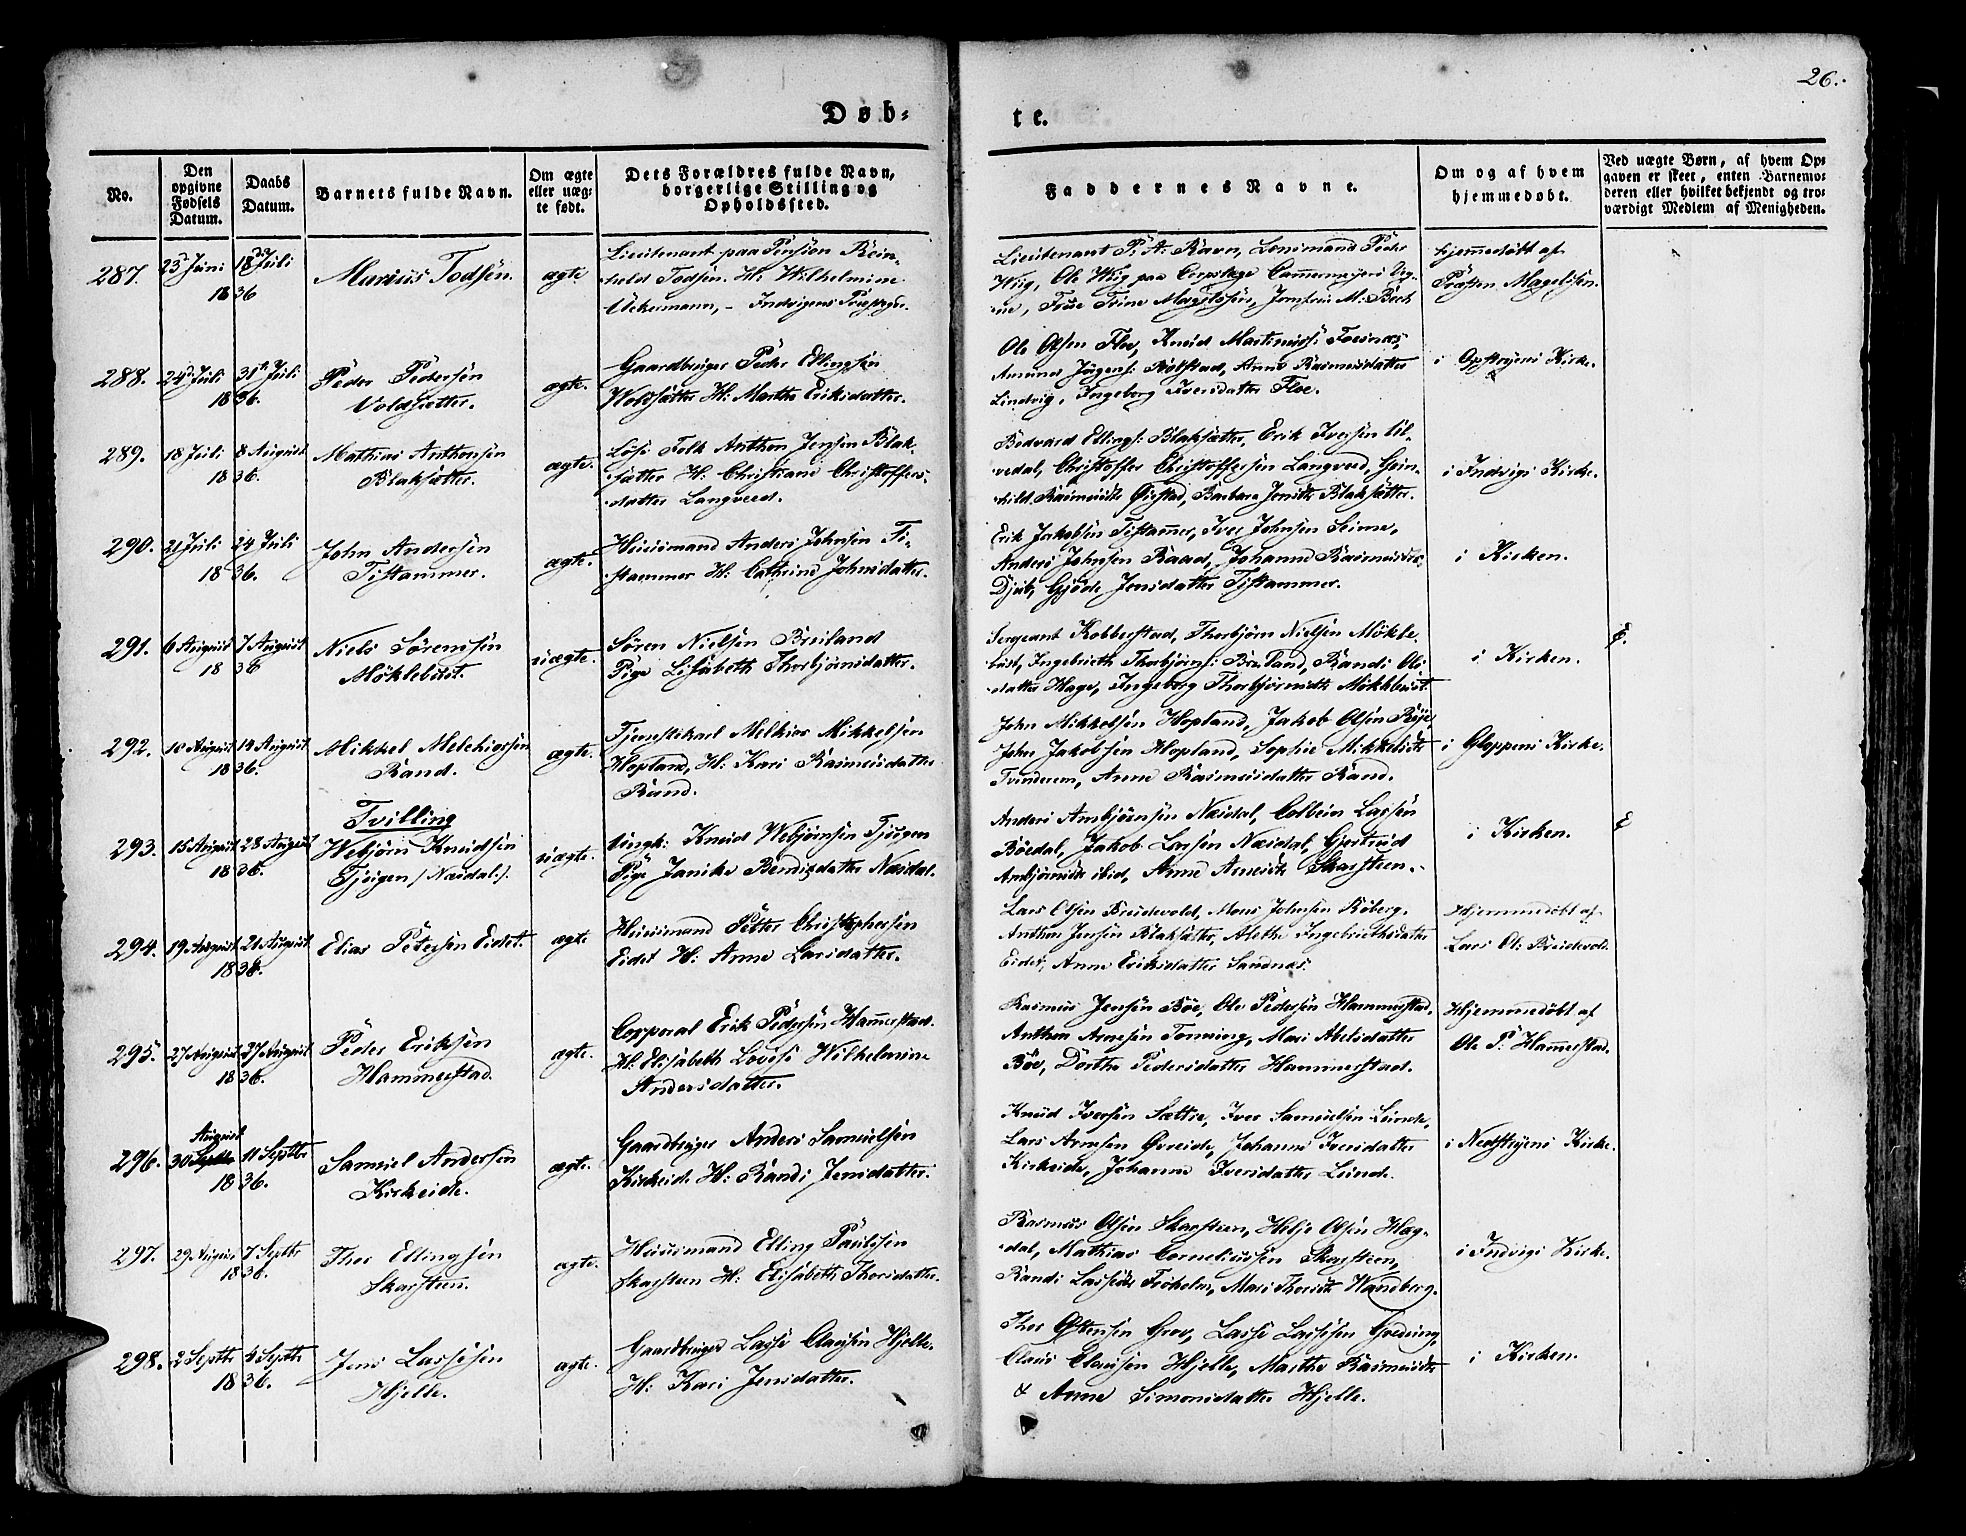 26.
Døb-
te.
No.
Den opgivne Fødsels Datum.
Daabs Datum.
Barnets fulde Navn.
Om ægte eller uægte født.
Dets Forældres fulde Navn, borgerlige Stilling og Opholdssted.
Faddernes Navne.
Om og af hvem hjemmedøbt.
Ved uægte Børn, af hvem Opgaven er skeet, enten Barnemoderen eller hvilket bekjendt og troværdigt Medlem af Menigheden.
287. 23d Juni Juli 1836
Marius Todsen.
ægte
Lieutenant paa Pension Rein-
hold Todsen. H: Wilhelmine
Uckermann, - Indvigens Præstegr.
Lieutenant P. A. Ravn, Lensmand Peder
Wiig, Ole Wiig paa
Frue Trine Magelssen, Jomfru M: Beck
hjemmedøbt af
Præsten Magelssen.
288. 24d Juli 31te Juli 1836.
Peder Pedersen
Voldsætter.
ægte.
Gaardbruger Peder Ellingsen
Woldsætter H: Marthe Eriksdatter.
Ole Olsen Floe, Knud Martinus:
Amund Jørgens: Rolstad, Anne Rasmusdatter
Lindvig, Ingeborg Iversdatter Floe.
i Opstryens Kirke.
289. 18 Juli 8 August 1836.
Mathias Anthonsen
Blaksætter.
ægte.
Løse Folk Anthon Jensen Blak-
sætter H: Christiane Christoffers-
datter Langveed.
Bodvard Ellings: Blaksætter, Erik Iversen Ul-
vedal, Christoffer Christoffersen Langveed, Guin-
hild Rasmusdt Øvstad, Barbara Jensdt Blaksætter.
i Indvigs Kirke.
290. 21 Juli 24 Juli 1836.
John Andersen
Tistammer.
ægte.
Huusmand Anders Johnsen Ti-
stammer H: Cathrine Johnsdatter.
Erik Jakobsen Tistammer, Iver Johnsen Seime,
Anders Johnsen Raad, Johanne Rasmusdtr
Djub, Gjøde Jensdatter Tistammer.
i Kirken.
291. 6 August 7 August 1836
Niels Sørensen
Møklebust.
uægte.
Søren Nielsen Breiland
Pige Lisabeth Thorbjørnsdatter.
Sergeant Kobberstad, Thorbjørn Nielsen Møkle-
bust, Ingebrieth Thorbjørns: Breiland, Randi Ols-
datter Hage, Ingeborg Thorbjørnsdt Møklebust.
i Kirken.
292. 10 August 14 August 1836.
Mikkel Melchiorsen
Rand.
ægte.
Tjenstkarl Melkior Mikkelsen
Hopland, H: Kari Rasmusdatter
Rand.
John Mikkelsen Hopland, Jakob Olsen Røje,
John Jakobsen Hopland, Sophie Mikkelsdt
Tvinderem, Anne Rasmusdatter Rand.
i Gloppens Kirke.
293. 15 August 28 August 1836.
Tvilling
Webjørn Knudsen
Tjugen / Næsdal /.
uægte.
Ungk: Knud Webjørnsen Tjugen
Pige Janike Bendixdatter Næsdal.
Anders Ambjørnsen Næsdal, Colbein Lassen
Bødal, Jakob Lassen Næsdal, Gjertrud
Ambjørnsdt ibid, Anne Arnesdt Skarsteen.
i Kirken.
294. 19 August 21 August 1836.
Elias Petersen Eidet.
ægte
Huusmand Petter Christophersen
Eidet H: Anne Larsdatter.
Lars Olsen Breidevold, Mons Johnsen Røberg,
Anthon Jensen Blaksætter, Alethe Ingebriethsdatter
Eidet, Anne Eriksdatter Sandnæs.
Hjemmedøbt af
Lars Ol: Breidevold.
295. 27 August 27 August 1836.
Peder Eriksen
Hammerstad.
ægte.
Corporal Erik Pedersen Hammerstad.
H: Elisabeth Lovise Wilhelmine
Andersdatter.
Rasmus Jensen Bøe, Ole Pedersen Hammerstad,
Anthon Arnesen Tonning, Mari Abelsdatter
Bøe, Dorthe Pedersdatter Hammerstad.
Hjemmedøbt af
Ole P: Hammerstad.
296. August
30 Septbr 11 Septbr 1836.
Samuel Andersen
Kirkeide.
ægte.
Gaardbruger Anders Samuelsen
Kirkeide H: Randi Jensdatter.
Knud Iversen Sættre, Iver Samuelsen Lunde,
Lars Arnesen Øvreide, Johanne Iversdatter
Kirkeide, Johanne Iversdatter Lunde.
i Nedstryens Kirke.
297. 29 August 7 Septbr 1836.
Thor Ellingsen
Skarsteen.
ægte.
Huusmand Elling Paulsen
Skarsteen H: Elisabeth Thorsdatter.
Rasmus Olsen Skarsteen, Helje Olsen Hag-
dal, Mathias Corneliussen Skarsteen,
Randi Lassesdt Frøholm, Mari Thorsdt Wandberg.
i Indvigs Kirke.
298. 2 Septbr 4 Septbr 1836.
Jens Lassesen
Hjelle.
ægte.
Gaardbruger Lasse Clausen Hjelle.
H: Kari Jensdatter.
Thor Ostensen Grov, Lasse Lassesen Gredung,
Claus Clausen Hjelle, Marthe Rasmusdt
& Anne Simonsdatter Hjelle.
i Kirken.